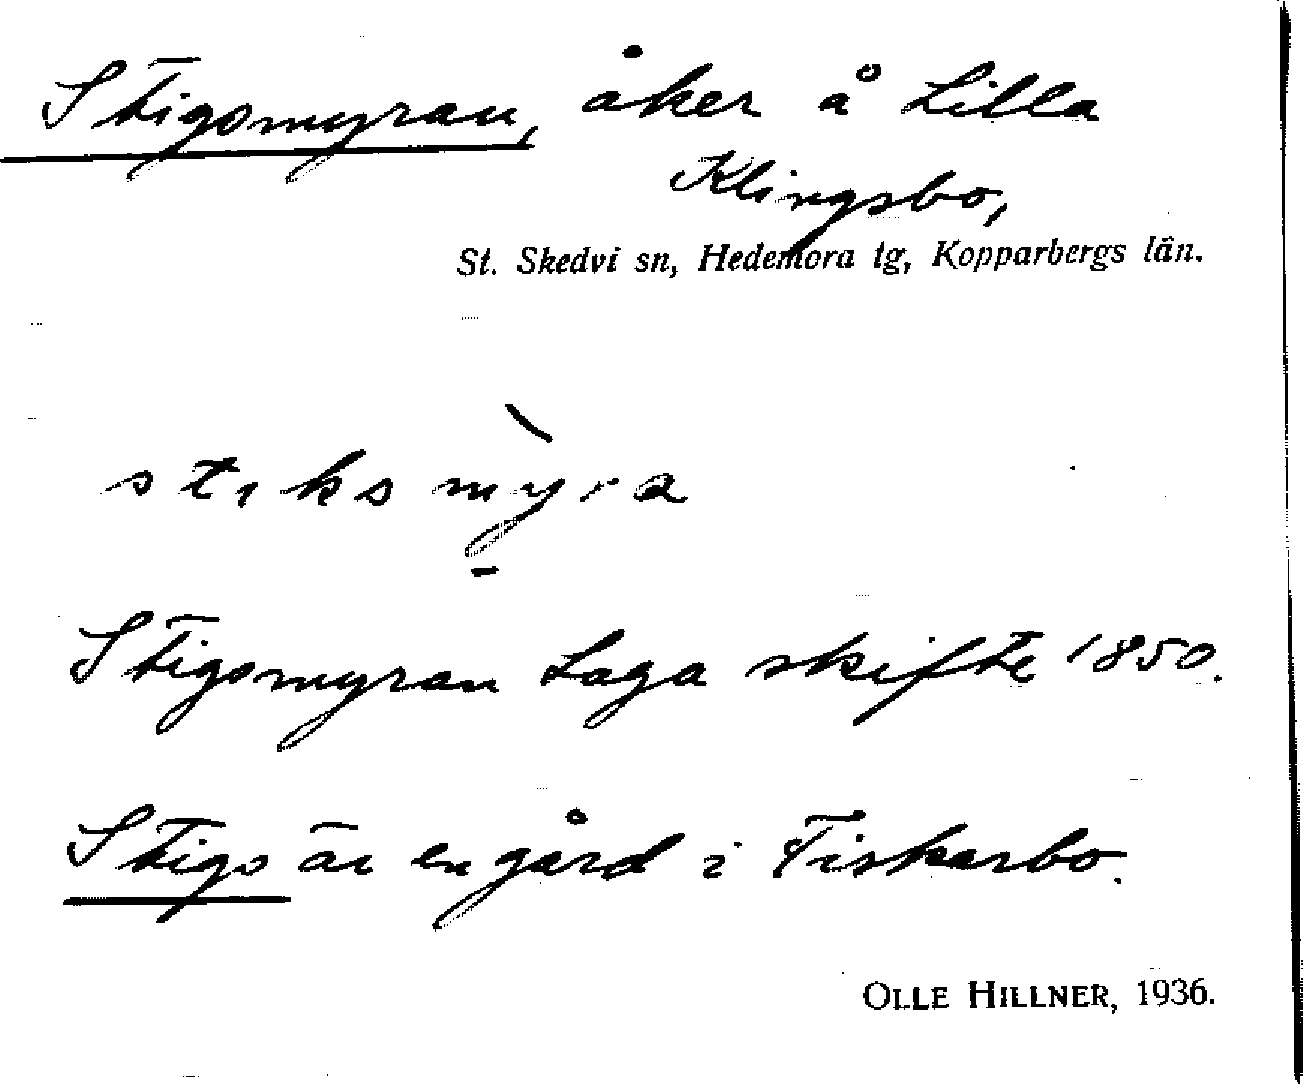 Stigsmyran, åker å Lilla
Klingsbo,
St. Skedvi sn, Hedemora tg, Kopparbergs län.
stıksmỳra
Stigsmyran Laga skifte 1850.
Stigs är en gård i Fiskarbo.
OLLE HILLNER, 1936.